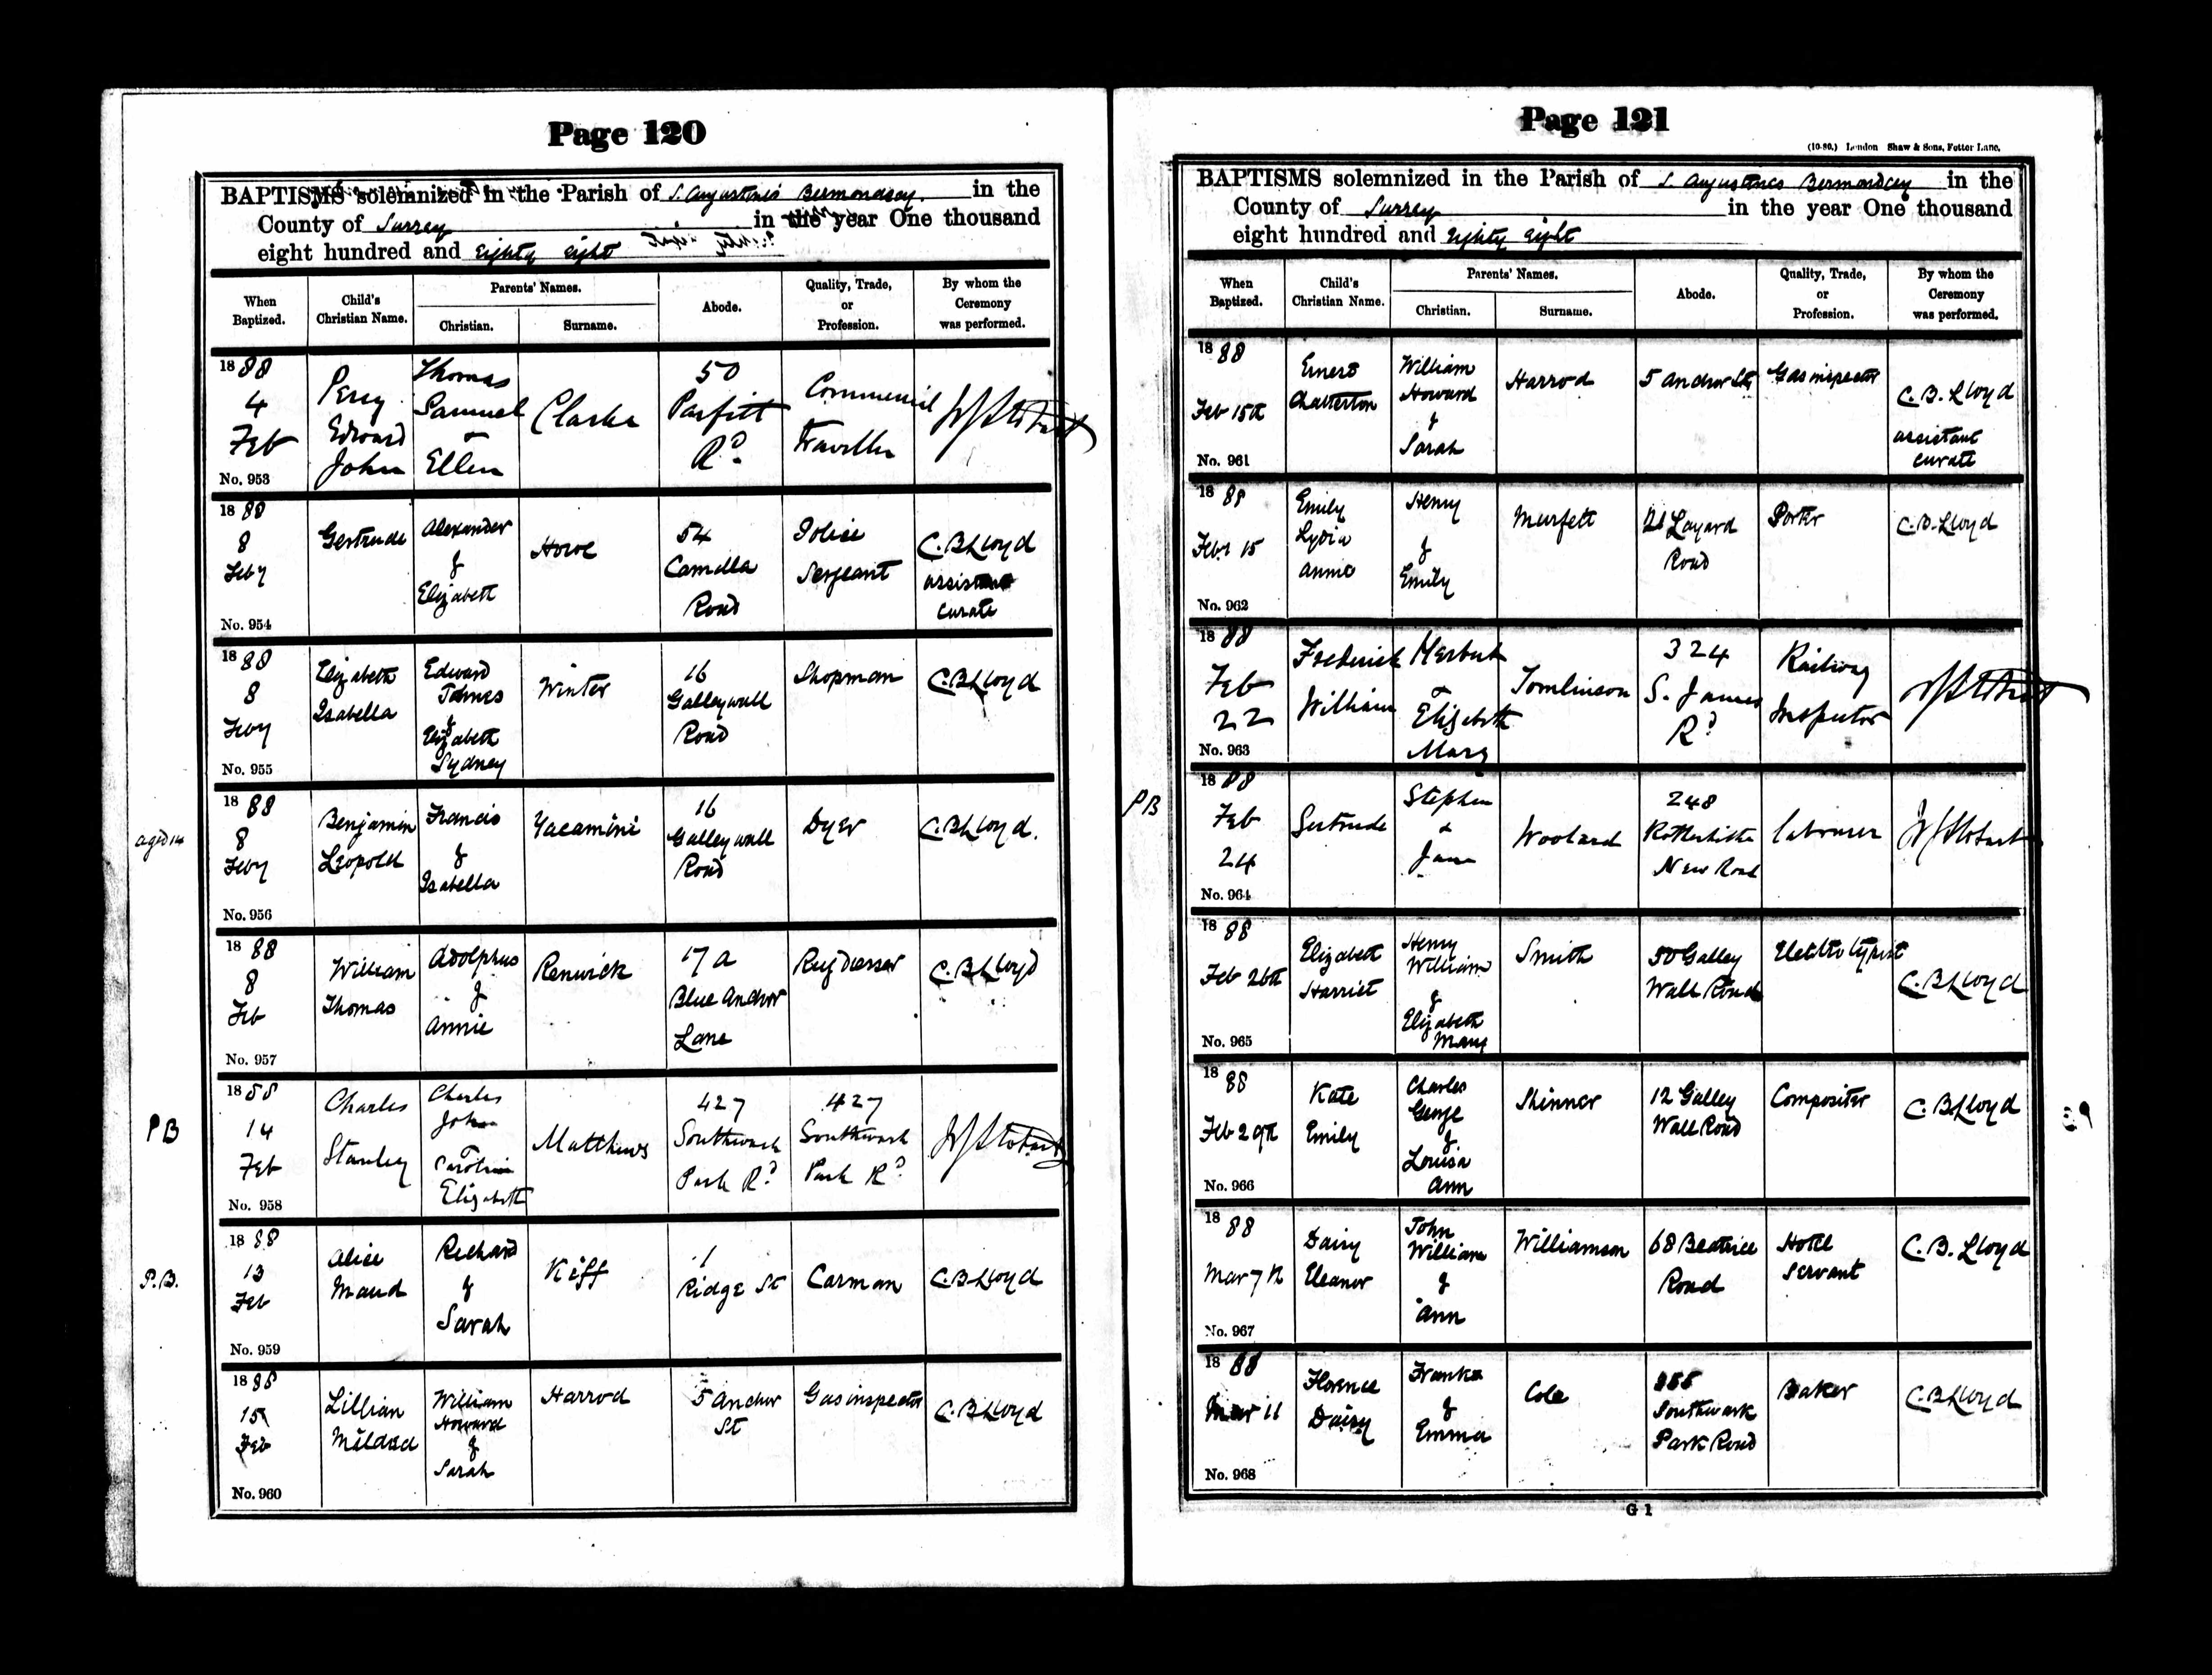 Page 120
BAPTISMS solemnized in the Parish of S. Augustine's Bermondsey in the
County of Surrey in the year One thousand
eight hundred and Eighty eight
When Baptized.
Child's Christian Name.
Parents' Names.
Christian.
Surname.
Abode.
Quality, Trade, or Profession.
By whom the Ceremony was performed.
1888
4
Feb
No. 953
Percy
Edward
John
Thomas
Samuel
+
Ellen
Clarke
50
Parfitt
Rd.
Commercial
Traveller
1888
8
Feby
No. 954
Gertrude
Alexander
&
Elizabeth
Howe
54
Camilla
Road
Police
Sergeant
C.B Lloyd
assistant
curate
1888
8
Feby
No. 955
Elizabeth
Isabella
Edward
James
&
Elizabeth
Sydney
Winter
16
Galleywall
Road
Shopman
C.B Lloyd
aged 14
1888
8
Feby
No. 956
Benjamin
Leopold
Francis
&
Isabella
Yacamini
16
Galleywall
Road
Dyer
C.B Lloyd.
1888
8
Feb
No. 957
William
Thomas
Adolphus
&
Annie
Renwick
17a
Blue Anchor
Lane
Rug Dresser
C.B Lloyd
PB
1888
14
Feb
No. 958
Charles
Stanley
Charles
John
+
Caroline
Elizabeth
Matthews
427
Southwark
Park Rd.
427
Southwark
Park Rd.
P.B.
1888
13
Feb
No. 959
Alice
Maud
Richard
&
Sarah
Kiff
1
Ridge St
Carman
C.B Lloyd
1888
15
Feb
No. 960
Lillian
Mildred
William
Howard
&
Sarah
Harrod
5 Anchor
St
Gas inspector
C.B Lloyd
Page 121
(10-80.) London Shaw & Sons, Fetter Lane.
BAPTISMS solemnized in the Parish of S. Augustines Bermondsey in the
County of Surrey in the year One thousand
eight hundred and eighty eight
When Baptized.
Child's Christian Name.
Parents' Names.
Christian.
Surname.
Abode.
Quality, Trade, or Profession.
By whom the Ceremony was performed.
1888
Feb 15th
No. 961
Ernest
Chatterton
William
Howard
&
Sarah
Harrod
5 Anchor St
Gas inspector
C.B. Lloyd
assistant
curate
1888
Feb 15
No. 962
Emily
Lydia
Annie
Henry
&
Emily
Murfett
Layard
Road
Porter
C.B. Lloyd
1888
Feb
22
No. 963
Frederick
William
Herbert
+
Elizabeth
Mary
Tomlinson
324
S. James
Rd
Railway
Inspector
PB
1888
Feb
24
No. 964
Gertrude
Stephen
+
Jane
Woolard
248
Rotherhithe
New Road
labourer
1888
Feb 26th
No. 965
Elizabeth
Harriet
Henry
William
&
Elizabeth
Mary
Smith
50 Galley
Wall Road
Electrotypist
C.B Lloyd
1888
Feb 29th
No. 966
Kate
Emily
Charles
George
&
Louisa
Ann
Skinner
12 Galley
Wall Road
Compositer
C.B Lloyd
1888
Mar 7th
No. 967
Daisy
Eleanor
John
William
&
Ann
Williamson
68 Beatrice
Road
Hotel
Servant
C.B. Lloyd
1888
Mar 11
No. 968
Florence
Daisy
Frank
&
Emma
Cole
Southwark
Park Road
Baker
C.B Lloyd
G 1